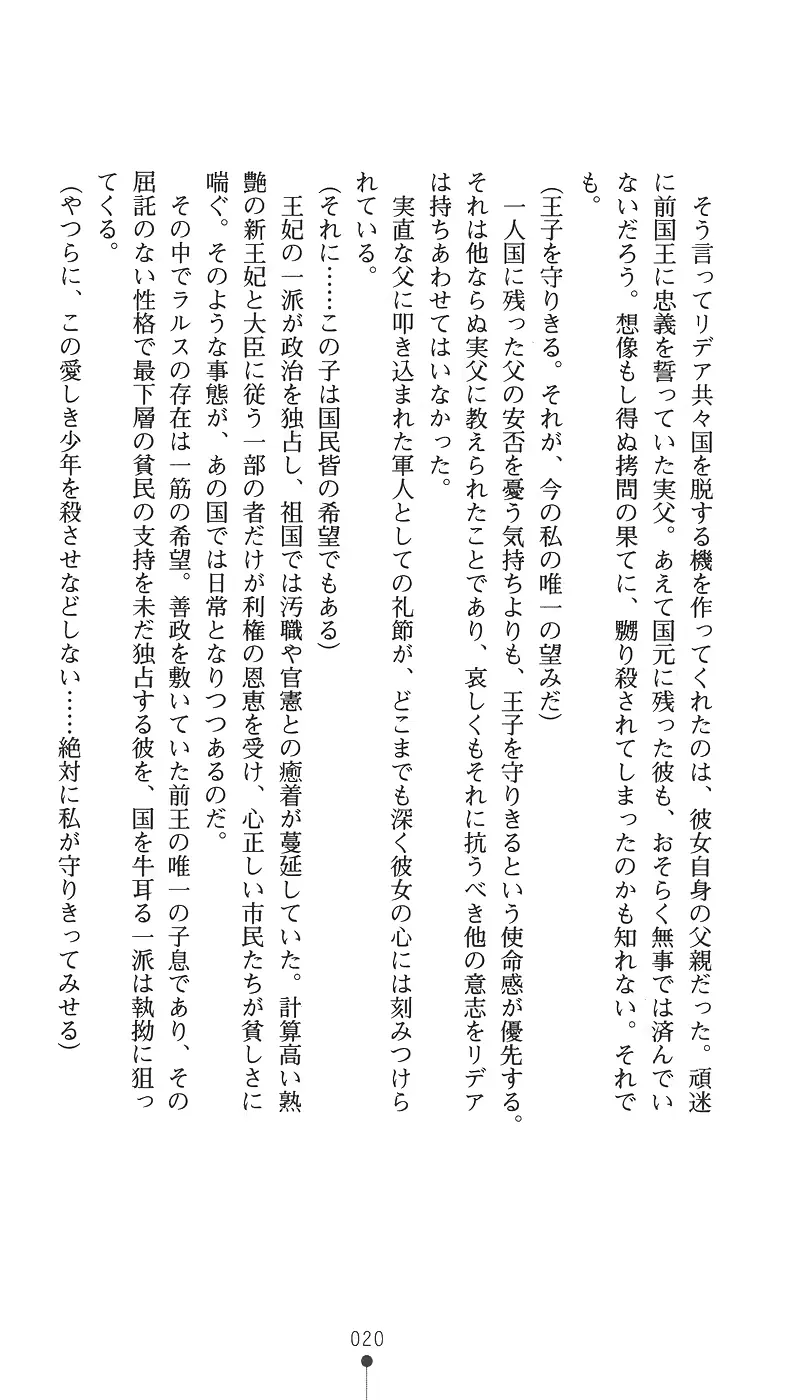 そう言ってリデア共々国を脱する機を作ってくれたのは、彼女自身の父親だった。頑迷
に前国王に忠義を誓っていた実父。あえて国元に残った彼も、おそらく無事では済んでい
ないだろう。想像もし得ぬ拷問の果てに、嬲り殺されてしまったのかも知れない。それで
も。
(王子を守りきる。それが、今の私の唯一の望みだ)
一人国に残った父の安否を憂う気持ちよりも、王子を守りきるという使命感が優先する。
それは他ならぬ実父に教えられたことであり、哀しくもそれに抗うべき他の意志をリデア
は持ちあわせてはいなかった。
実直な父に叩き込まれた軍人としての礼節が、どこまでも深く彼女の心には刻みつけら
れている。
(それに……この子は国民皆の希望でもある)
王妃の一派が政治を独占し、祖国では汚職や官憲との癒着が蔓延していた。計算高い熟
艶の新王妃と大臣に従う一部の者だけが利権の恩恵を受け、心正しい市民たちが貧しさに
喘ぐ。そのような事態が、あの国では日常となりつつあるのだ。
その中でラルスの存在は一筋の希望。善政を敷いていた前王の唯一の子息であり、その
屈託のない性格で最下層の貧民の支持を未だ独占する彼を、国を牛耳る一派は執拗に狙っ
てくる。
(やつらに、この愛しき少年を殺させなどしない……絶対に私が守りきってみせる)
020